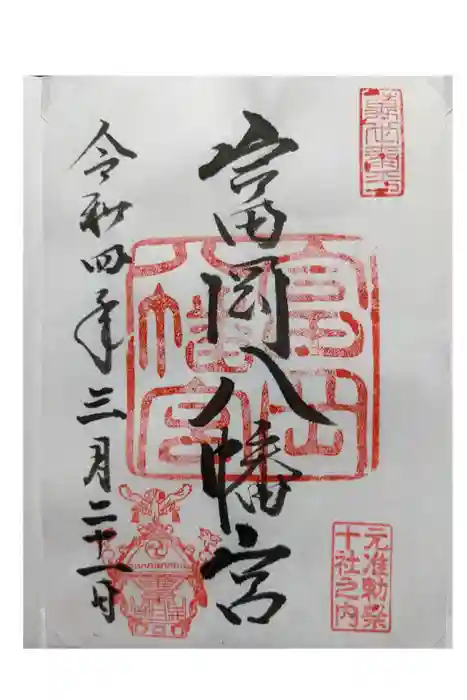 富岡八幡宮
富岡
八幡宮
元准勅祭
十社之内
令和四年三月二十一日